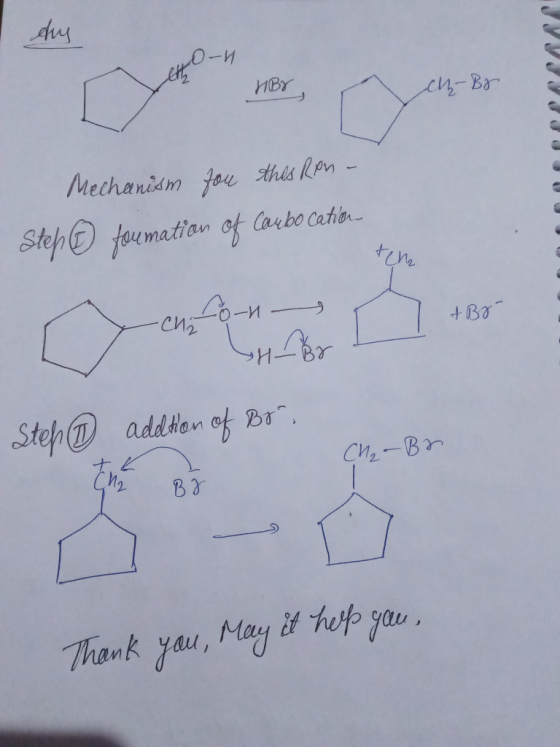 Ans
CH2 O-H
HBr
CH2-Br
Mechanism for this Rxn -
Step I formation of Carbocation-
+CH2
CH2-O-H
+Br-
H-Br
Step II addtion of Br-.
CH2-Br
+
CH2 Br
Thank you, May it help you.